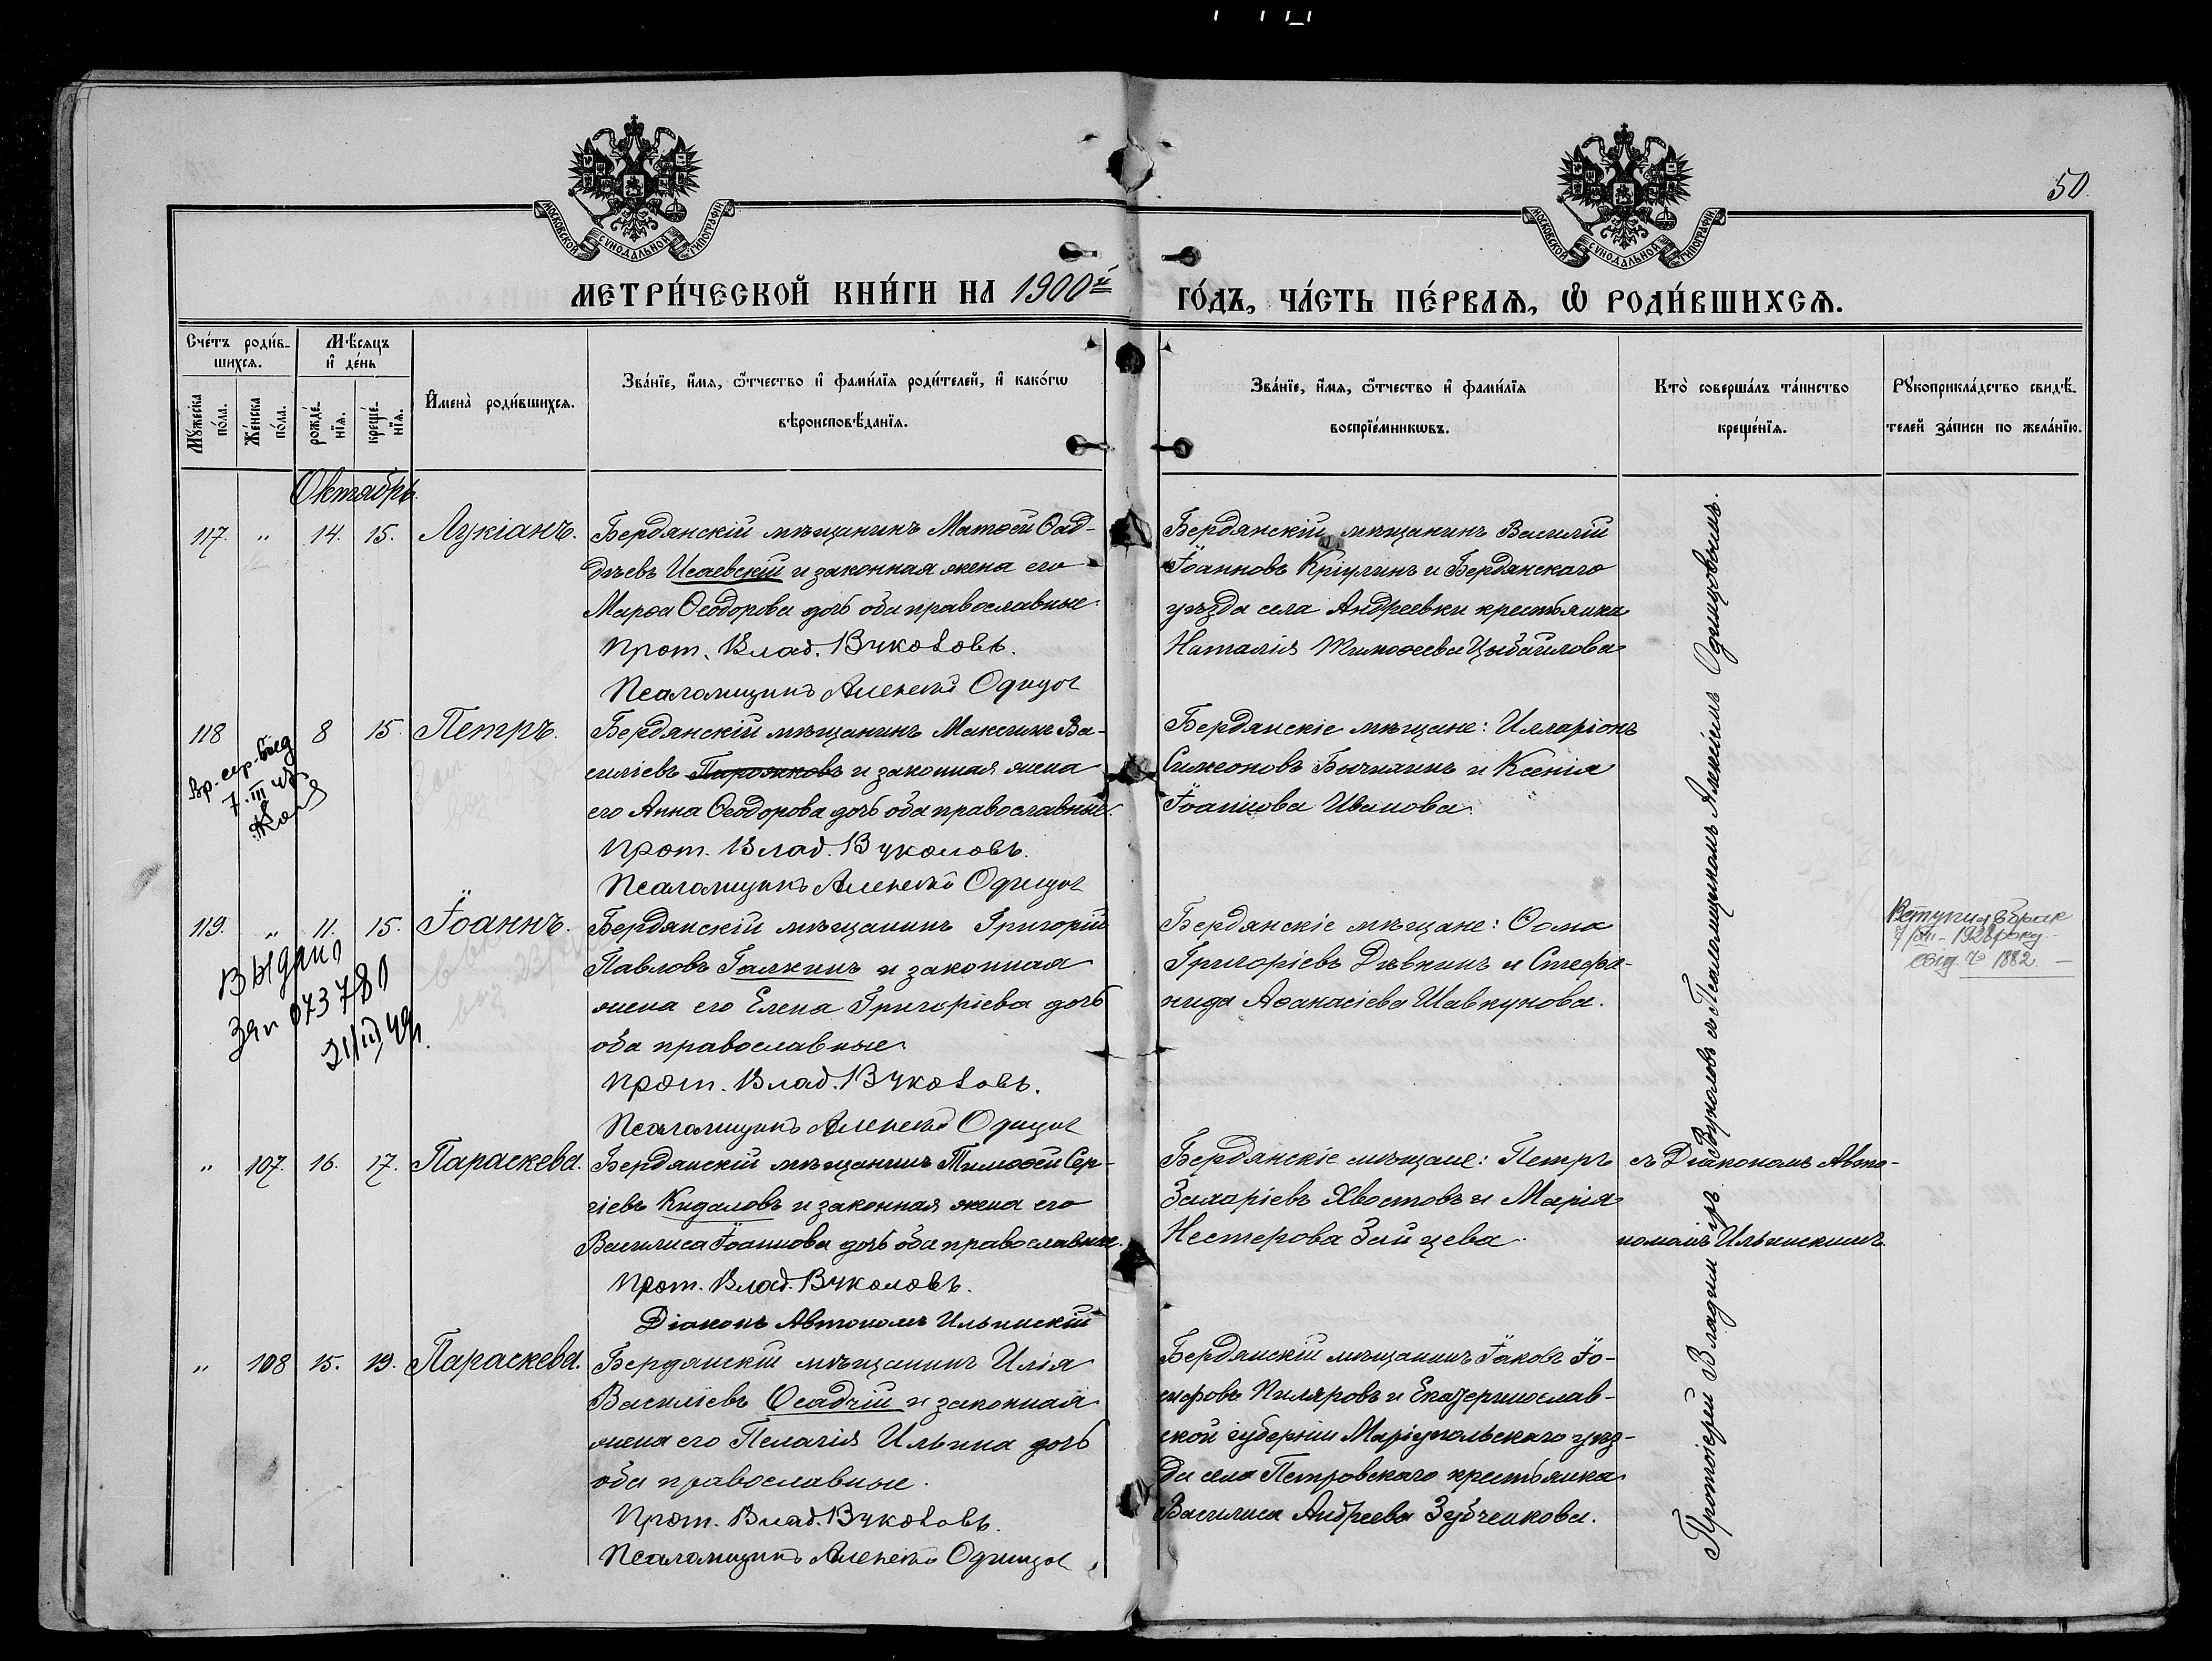 50.
МОСКОВСКОЙ СѴНОДАЛЬНОЙ ТИПОГРАФІИ
МОСКОВСКОЙ СѴНОДАЛЬНОЙ ТИПОГРАФІИ
МЕТРИ́ЧЕСКОЙ КНИ́ГИ НА 1900й ГО́ДЪ, ЧА́СТЬ ПЕ́РВАѦ, Ѽ РОДИ́ВШИХСѦ.
Сче́тъ роди́в-
шихсѧ.
Мꙋ́жеска по́ла.
Же́нска по́ла.
Мѣ́сѧцъ
и҆ де́нь
рожде́-
нїѧ.
креще́-
нїѧ.
И҆мена̀ роди́вшихсѧ.
Зва́нїе, и҆́мѧ, ѻ҆́тчество и҆ фами́лїѧ роди́телей, и҆ како́гѡ
вѣроисповѣ́данїѧ.
Зва́нїе, и҆́мѧ, ѻ҆́тчество и҆ фами́лїѧ
воспрїе́мникѡвъ.
Кто̀ соверша́лъ та́инство
креще́нїѧ.
Рꙋкоприкла́дство свидѣ́-
телей за́писи по жела́нїю.
Октябрь.
117. " 14. 15. Лукіанъ.
Бердянскій мѣщанинъ Матѳей Ѳад-
дѣевъ Исаевскій и законная жена его
Марѳа Ѳеодорова дочь оба православные.
Прот. Влад. Вуколовъ.
Псаломщикъ Алексѣй Одинцов
Бердянскій мѣщанинъ Василій
Іоанновъ Кріулинъ и Бердянскаго
уѣзда села Андреевки крестьянка
Наталія Тимоѳеева Цыбаилова
118 8 15. Петръ.
Вр. сер. выд
7.III 42
Бердянскій мѣщанинъ Максимъ Ва-
силіевъ Пирожковъ и законная жена
его Анна Ѳеодорова дочь оба православные.
Прот. Влад. Вуколовъ.
Псаломщикъ Алексѣй Одинцов
Бердянскіе мѣщане: Илларіонъ
Симеоновъ Бычихинъ и Ксенія
Іоаннова Иванова.
119. " 11. 15. Іоаннъ.
Выдано
Зяп 073780
21/III 49г.
Бердянскій мѣщанинъ Григорій
Павловъ Галкинъ и законная
жена его Елена Григоріева дочь
оба православные.
Прот. Влад. Вуколовъ.
Псаломщикъ Алексѣй Одинцов
Бердянскіе мѣщане: Ѳома
Григоріевъ Дѣвкинъ и Стефа-
нида Аѳанасіева Шавкунова.
Вступив в брак
7/VII - 1928 року
свід. № 1882. —
" 107. 16. 17. Параскева.
Бердянскій мѣщанинъ Тимоѳей Сер-
гіевъ Кидаловъ и законная жена его
Василиса Іоаннова дочь оба православные.
Прот. Влад. Вуколовъ.
Діаконъ Автономъ Ильинскій
Бердянскіе мѣщане: Петръ
Захаріевъ Хвостовъ и Марія
Нестерова Зайцева.
съ Діакономъ Авто-
номомъ Ильинскимъ.
" 108 15. 19. Параскева.
Бердянскій мѣщанинъ Илія
Василіевъ Осадчій и законная
жена его Пелагія Ильина дочь
оба православные.
Прот. Влад. Вуколовъ.
Псаломщикъ Алексѣй Одинцов
Бердянскій мѣщанинъ Іаковъ Іо-
сифовъ Пиляровъ и Екатеринослав-
ской губерніи Маріупольскаго уѣз-
да села Петровскаго крестьянка
Василиса Андреева Зубченкова.
Протоіерей Владиміръ Вуколовъ съ Псаломщикомъ Алексіемъ Одинцовымъ.